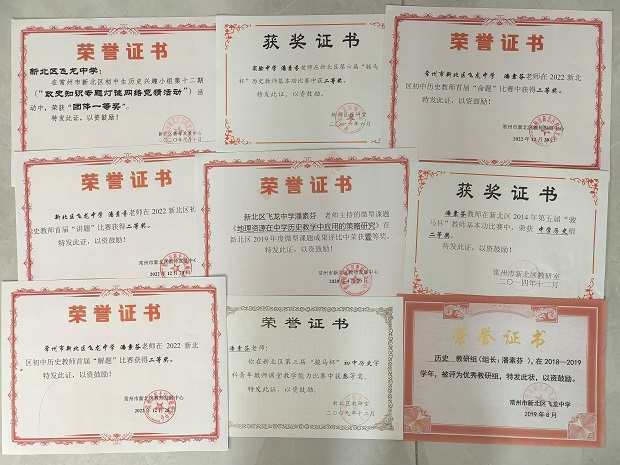 荣誉证书
新北区飞龙中学：
在常州市新北区初中生历史兴趣小组第十二期
动中，荣获“团体一等奖”。
特发此证，以资鼓励！
二〇二〇年六月十日
获奖证书
实验中学 潘素芬老师在新北区第六届“骏马
杯”历史教师基本功比赛中获二等奖。
特发此证，以资鼓励。
荣誉证书
常州市新北区飞龙中学 潘素芬老师在 2022 新北
区初中历史教师首届“命题”比赛中获得二等奖。
特发此证，以资鼓励！
常州市新北区教师发展中心
2022 年 12 月 28 日
荣誉证书
新北区飞龙中学 潘素芬老师在 2022 新北区初
史教师首届“讲题”比赛获得二等奖。
特发此证，以资鼓励！
常州市新北区教师发展中心
荣誉证书
新北区飞龙中学潘素芬 老师主持的微型课题
《地理资源在中学历史教学中应用的策略研究》在
新北区 2019 年度微型课题成果评比中荣获壹等奖。
特发此证，以资鼓励！
常州市新北区教师发展中心
获奖证书
潘素芬教师在新北区 2014 年第五届“骏
马杯”教师基本功比赛中，荣获 中学历史组
二等奖。
特发此证，以资鼓励！
常州市新北区教研室
二〇一四年十二月
荣誉证书
常州市新北区飞龙中学 潘素芬老师在 2022
新北区初中历史教师首届“解题”比赛获得二等奖。
特发此证，以资鼓励！
常州市新北区教师发展中心
2022 年 12 月 28 日
荣誉证书
潘素芬老师：
你在新北区第三届“骏马杯”初中历史学
科青年教师课堂教学能力比赛中获叁等奖。
特发此证，以资鼓励！
新北区教研室
二〇〇九年十二月
荣誉证书
历史 教研组（组长：潘素芬），在 2018—2019
学年，被评为优秀教研组，特发此状，以资鼓励。
常州市新北区飞龙中学
2019 年 8 月